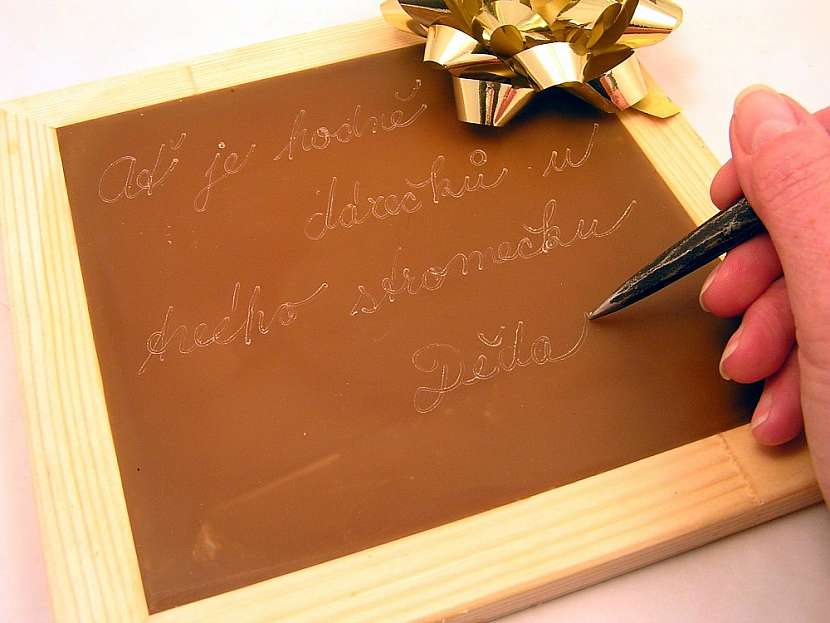 Ať je hodně
dárečků u
stromečku
Děda